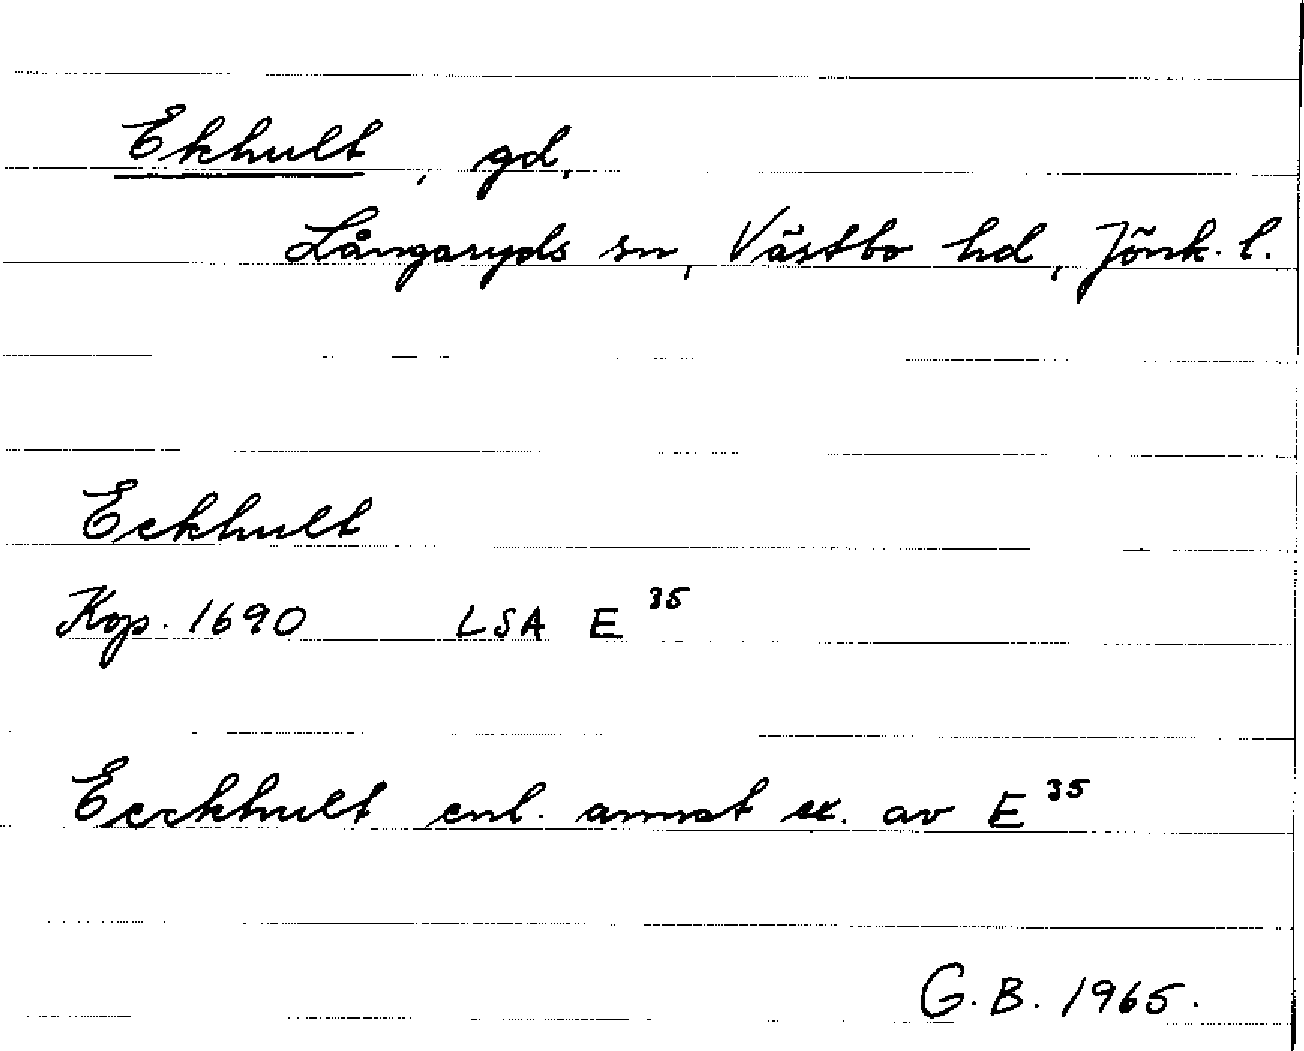 Ekhult, gd,
Långaryds sn, Västbo hd, Jönk. l.
Eckhult
Kop. 1690 LSA E 35
Eeckhult enl. annat ex. av E 35
G. B. 1965.